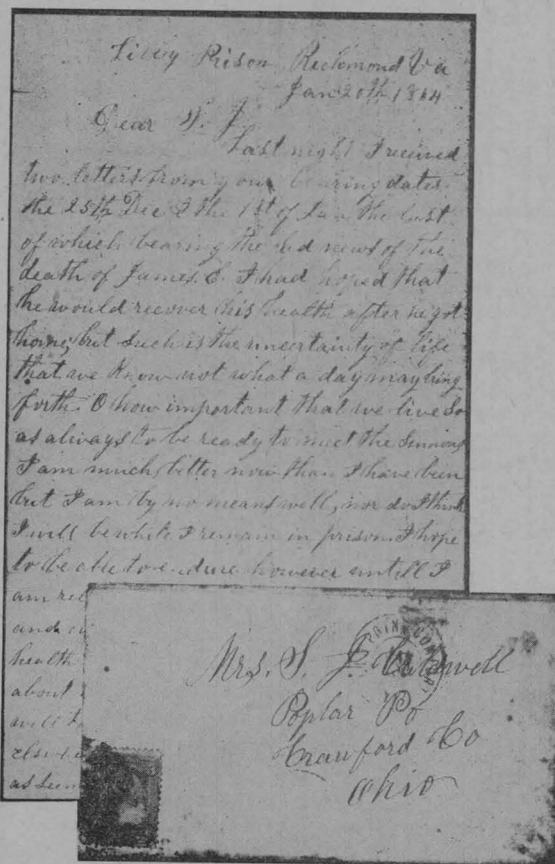 Libby Prison Richmond Va
Jan 20th 1864
Dear S. J.
Last night I received
two letters from you bearing dates
the 25th Dec & the 1st of Jan the last
of which bearing the sad news of the
death of James C. I had hoped that
he would recover his health after he got
home, but such is the uncertainty of life
that we know not what a day may bring
forth. O how important that we live so
as always to be ready to meet the Summons
I am much better now than I have been
but I am by no means well, nor do I think
I will be while I remain in prison. I hope
to be able to endure however untill I
am
and
health
about
will
as
Mrs. S. J.
Poplar Po
Crawford Co
Ohio